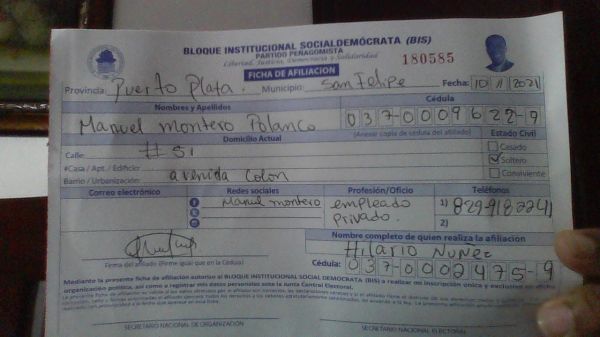 BLOQUE INSTITUCIONAL SOCIALDEMÓCRATA (BIS)
PARTIDO PEÑAGOMISTA
Libertad, Justicia, Democracia y Solidaridad
180585
FICHA DE AFILIACION
Provincia: Puerto Plata. Municipio: San Felipe Fecha: 10/11/2021
Nombres y Apellidos Cédula
Manuel montero Polanco 037-0009622-9
Domicilio Actual (Anexar copia de cédula del afiliado) Estado Civil
Calle: # 51 Casado
#Casa / Apt. / Edificio: Soltero
Barrio / Urbanización: avenida Colon Conviviente
Correo electrónico Redes sociales Profesión/Oficio Teléfonos
Manuel montero empleado 1) 829-9182241
privado. 2)
Nombre completo de quien realiza la afiliacion
Hilario Nuñez
Firma del afiliado (Firme igual que en la Cédula) Cédula: 037-0002475-9
Mediante la presente ficha de afiliación autorizo al BLOQUE INSTITUCIONAL SOCIALDEMÓCRATA (BIS) a realizar mi inscripción única y exclusiva en dicha
organización política, así como a registrar mis datos personales ante la Junta Central Electoral.
SECRETARIO NACIONAL DE ORGANIZACIÓN SECRETARIO NACIONAL ELECTORAL